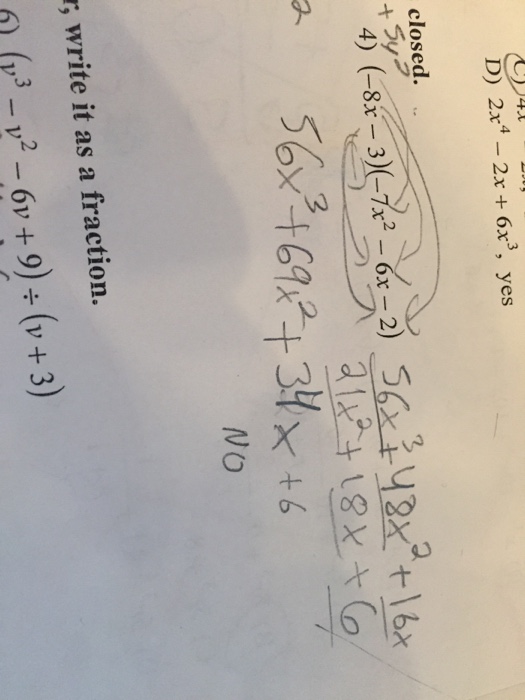 D) 2x⁴ − 2x + 6x³, yes
closed.
+ 5y²
4) (−8x − 3)(−7x² − 6x − 2)
56x³ + 48x² + 16x
21x² + 18x + 6
56x³ + 69x² + 34x + 6
NO
2
r, write it as a fraction.
6) (v³ − v² − 6v + 9) ÷ (v + 3)